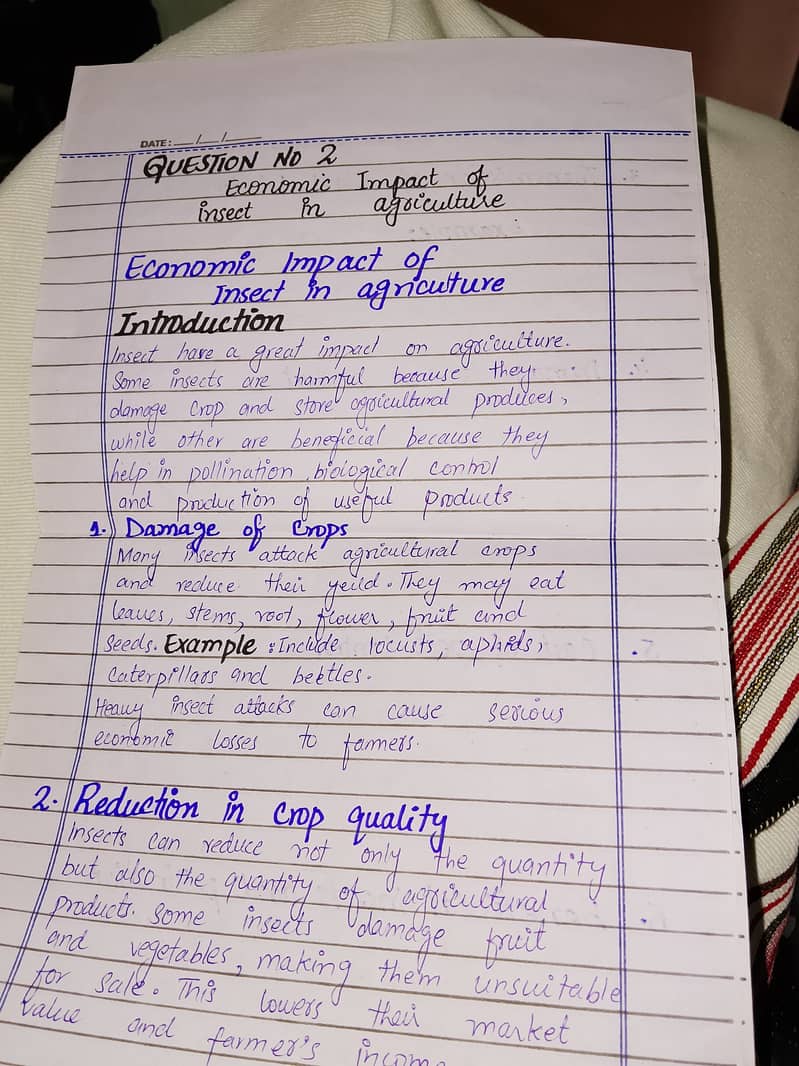 DATE: __/__/__
QUESTION NO 2
Economic Impact of
insect in agriculture
Economic Impact of
Insect in agriculture
Introduction
Insect have a great impact on agriculture.
Some insects are harmful because they
damage crop and store agricultural produces,
while other are beneficial because they
help in pollination, biological control
and production of useful products.
1. Damage of Crops
Many insects attack agricultural crops
and reduce their yeild. They may eat
leaves, stems, root, flower, fruit and
seeds. Example : Include locusts, aphids,
caterpillars and beetles.
Heavy insect attacks can cause serious
economic losses to farmers.
2. Reduction in crop quality
Insects can reduce not only the quantity
but also the quantity of agricultural
products. Some insects damage fruit
and vegetables, making them unsuitable
for sale. This lowers their market
value and farmer's income